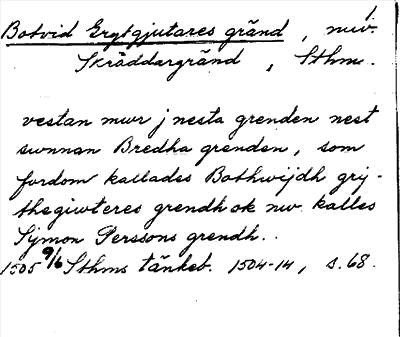 1
Botvid Grytgjutares gränd, nuv.
Skräddargränd, Sthm.
vestan mwr j nesta grenden nest
swnnan Bredha grenden, som
fordom kallades Bothwijdh grij-
thegiwteres grendh ok nw kalles
Sijmon Perssons grendh.
1505 9/6 Sthms tänkeb. 1504-14, s. 68.